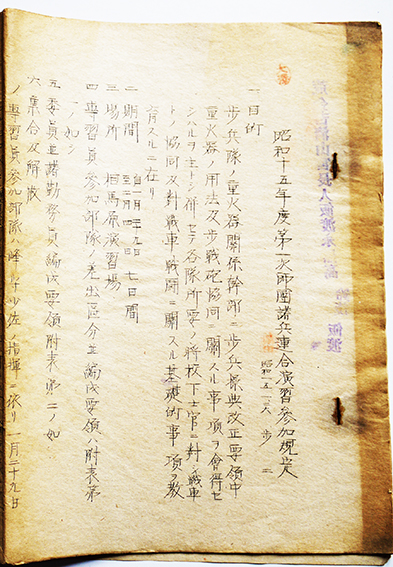 昭和十五年度第一次師團諸兵連合演習参加規定
昭和一五、一、六 歩二
一目的
歩兵隊ノ重火器關係幹部ニ歩兵操典改正要領中
重火器ノ用法及歩戦砲協同ニ關スル事項ヲ會得セ
シムルヲ主トシ併セテ各隊所要ノ将校下士官ニ對シ戦車
トノ協同及對戦車戦闘ニ關スル基礎的事項ヲ教
育スルニ在リ
二期間 自二月 至二月四日 七日間
三場所 相馬原演習場
四専習員参加部隊ノ差出區分並編成要領ハ附表第
一ノ如シ
五委員並諸勤務員編成要領附表第二ノ如シ
六集合及解散
ノ専習員参加部隊ハ 少佐ノ指揮ニ依リ一月二十九日